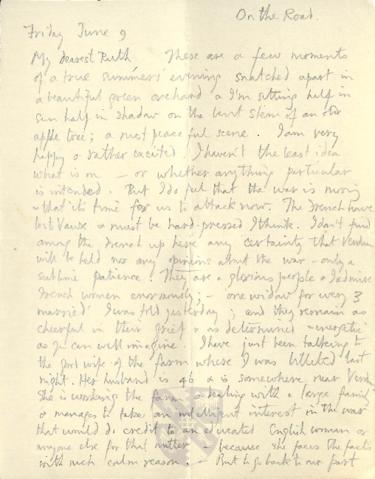 On the Road.
Friday June 9
My dearest Ruth These are a few moments
of a true summer's evening snatched apart in
a beautiful green orchard & I'm sitting half in
sun half in shadow on the bent stem of an old
apple tree; a most peaceful scene. I am very
happy & rather excited. I haven't the least idea
what is on – or whether anything particular
is intended. But I do feel that the war is moving
& that it's time for us to attack now. The French have
lost Vaux & must be hard-pressed I think. I don't find
among the French up here any certainty that Verdun
will be held nor any opinions about the war – only a
sublime patience. They are a glorious people & I admire
French women enormously; – one widow for every 3
married I was told yesterday; and they remain as
cheerful in their grief & as determined & energetic
as you can well imagine. I have just been talking to
the good wife of the farm where I was billeted last
night. Her husband is 46 & is somewhere near Verdun
She is working the farm & dealing with a large family
& manages to take an intelligent interest in the war
that would do credit to an educated English woman or
anyone else for that matter because she faces the facts
with such calm reason. – But to go back to our part